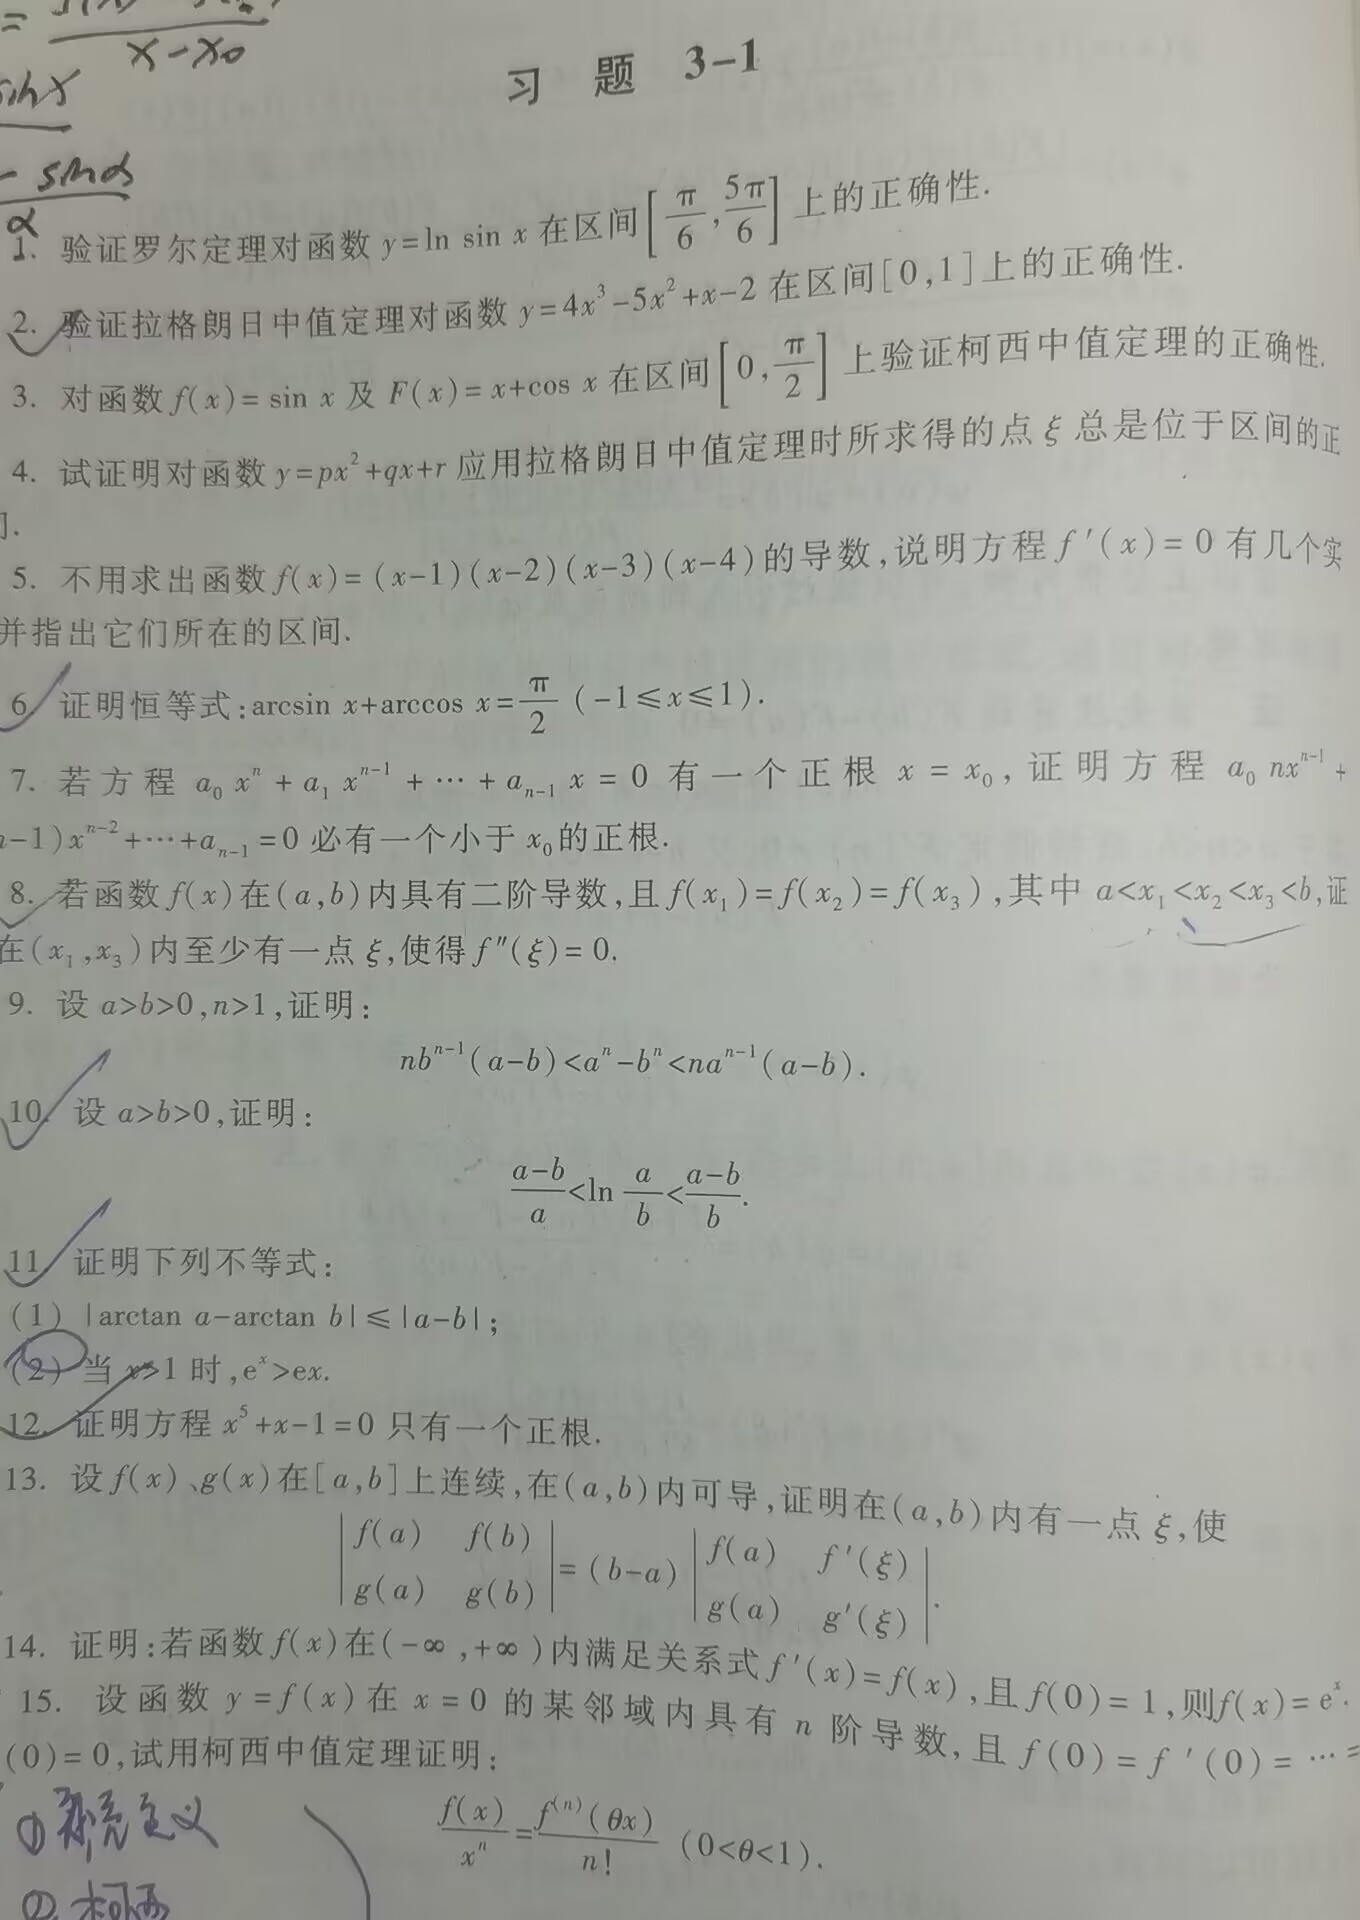 x-x₀
sinx
- sinα
α
习 题 3-1
1. 验证罗尔定理对函数 y=ln sin x 在区间[π/6, 5π/6]上的正确性.
2. 验证拉格朗日中值定理对函数 y=4x³-5x²+x-2 在区间[0,1]上的正确性.
3. 对函数 f(x)=sin x 及 F(x)=x+cos x 在区间[0, π/2]上验证柯西中值定理的正确性.
4. 试证明对函数 y=px²+qx+r 应用拉格朗日中值定理时所求得的点 ξ 总是位于区间的正
5. 不用求出函数 f(x)=(x-1)(x-2)(x-3)(x-4)的导数,说明方程 f′(x)=0 有几个实
并指出它们所在的区间.
6 证明恒等式:arcsin x+arccos x=π/2 (-1≤x≤1).
7. 若方程 a₀xⁿ+a₁xⁿ⁻¹+⋯+aₙ₋₁x=0 有一个正根 x=x₀,证明方程 a₀nxⁿ⁻¹+
-1)xⁿ⁻²+⋯+aₙ₋₁=0 必有一个小于 x₀ 的正根.
8. 若函数 f(x)在(a,b)内具有二阶导数,且 f(x₁)=f(x₂)=f(x₃),其中 a<x₁<x₂<x₃<b,证
在(x₁,x₃)内至少有一点 ξ,使得 f″(ξ)=0.
9. 设 a>b>0,n>1,证明:
nbⁿ⁻¹(a-b)<aⁿ-bⁿ<naⁿ⁻¹(a-b).
10. 设 a>b>0,证明:
(a-b)/a<ln a/b<(a-b)/b.
11 证明下列不等式:
(1) |arctan a-arctan b|≤|a-b|;
(2) 当 x>1 时,eˣ>ex.
12. 证明方程 x⁵+x-1=0 只有一个正根.
13. 设 f(x)、g(x)在[a,b]上连续,在(a,b)内可导,证明在(a,b)内有一点 ξ,使
|f(a) f(b)| = (b-a) |f(a) f′(ξ)|
|g(a) g(b)| |g(a) g′(ξ)|.
14. 证明:若函数 f(x)在(-∞,+∞)内满足关系式 f′(x)=f(x),且 f(0)=1,则f(x)=eˣ.
15. 设函数 y=f(x)在 x=0 的某邻域内具有 n 阶导数,且 f(0)=f′(0)=⋯=
(0)=0,试用柯西中值定理证明:
f(x)/xⁿ=f⁽ⁿ⁾(θx)/n! (0<θ<1).
② 柯西